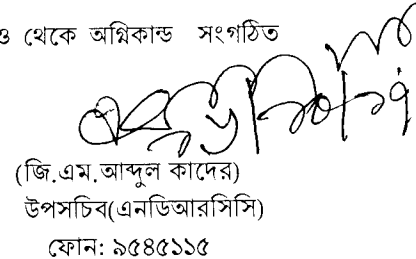 ও থেকে অগ্নিকান্ড সংগঠিত
(জি.এম.আব্দুল কাদের)
উপসচিব(এনডিআরসিসি)
ফোন: ৯৫৪৫১১৫